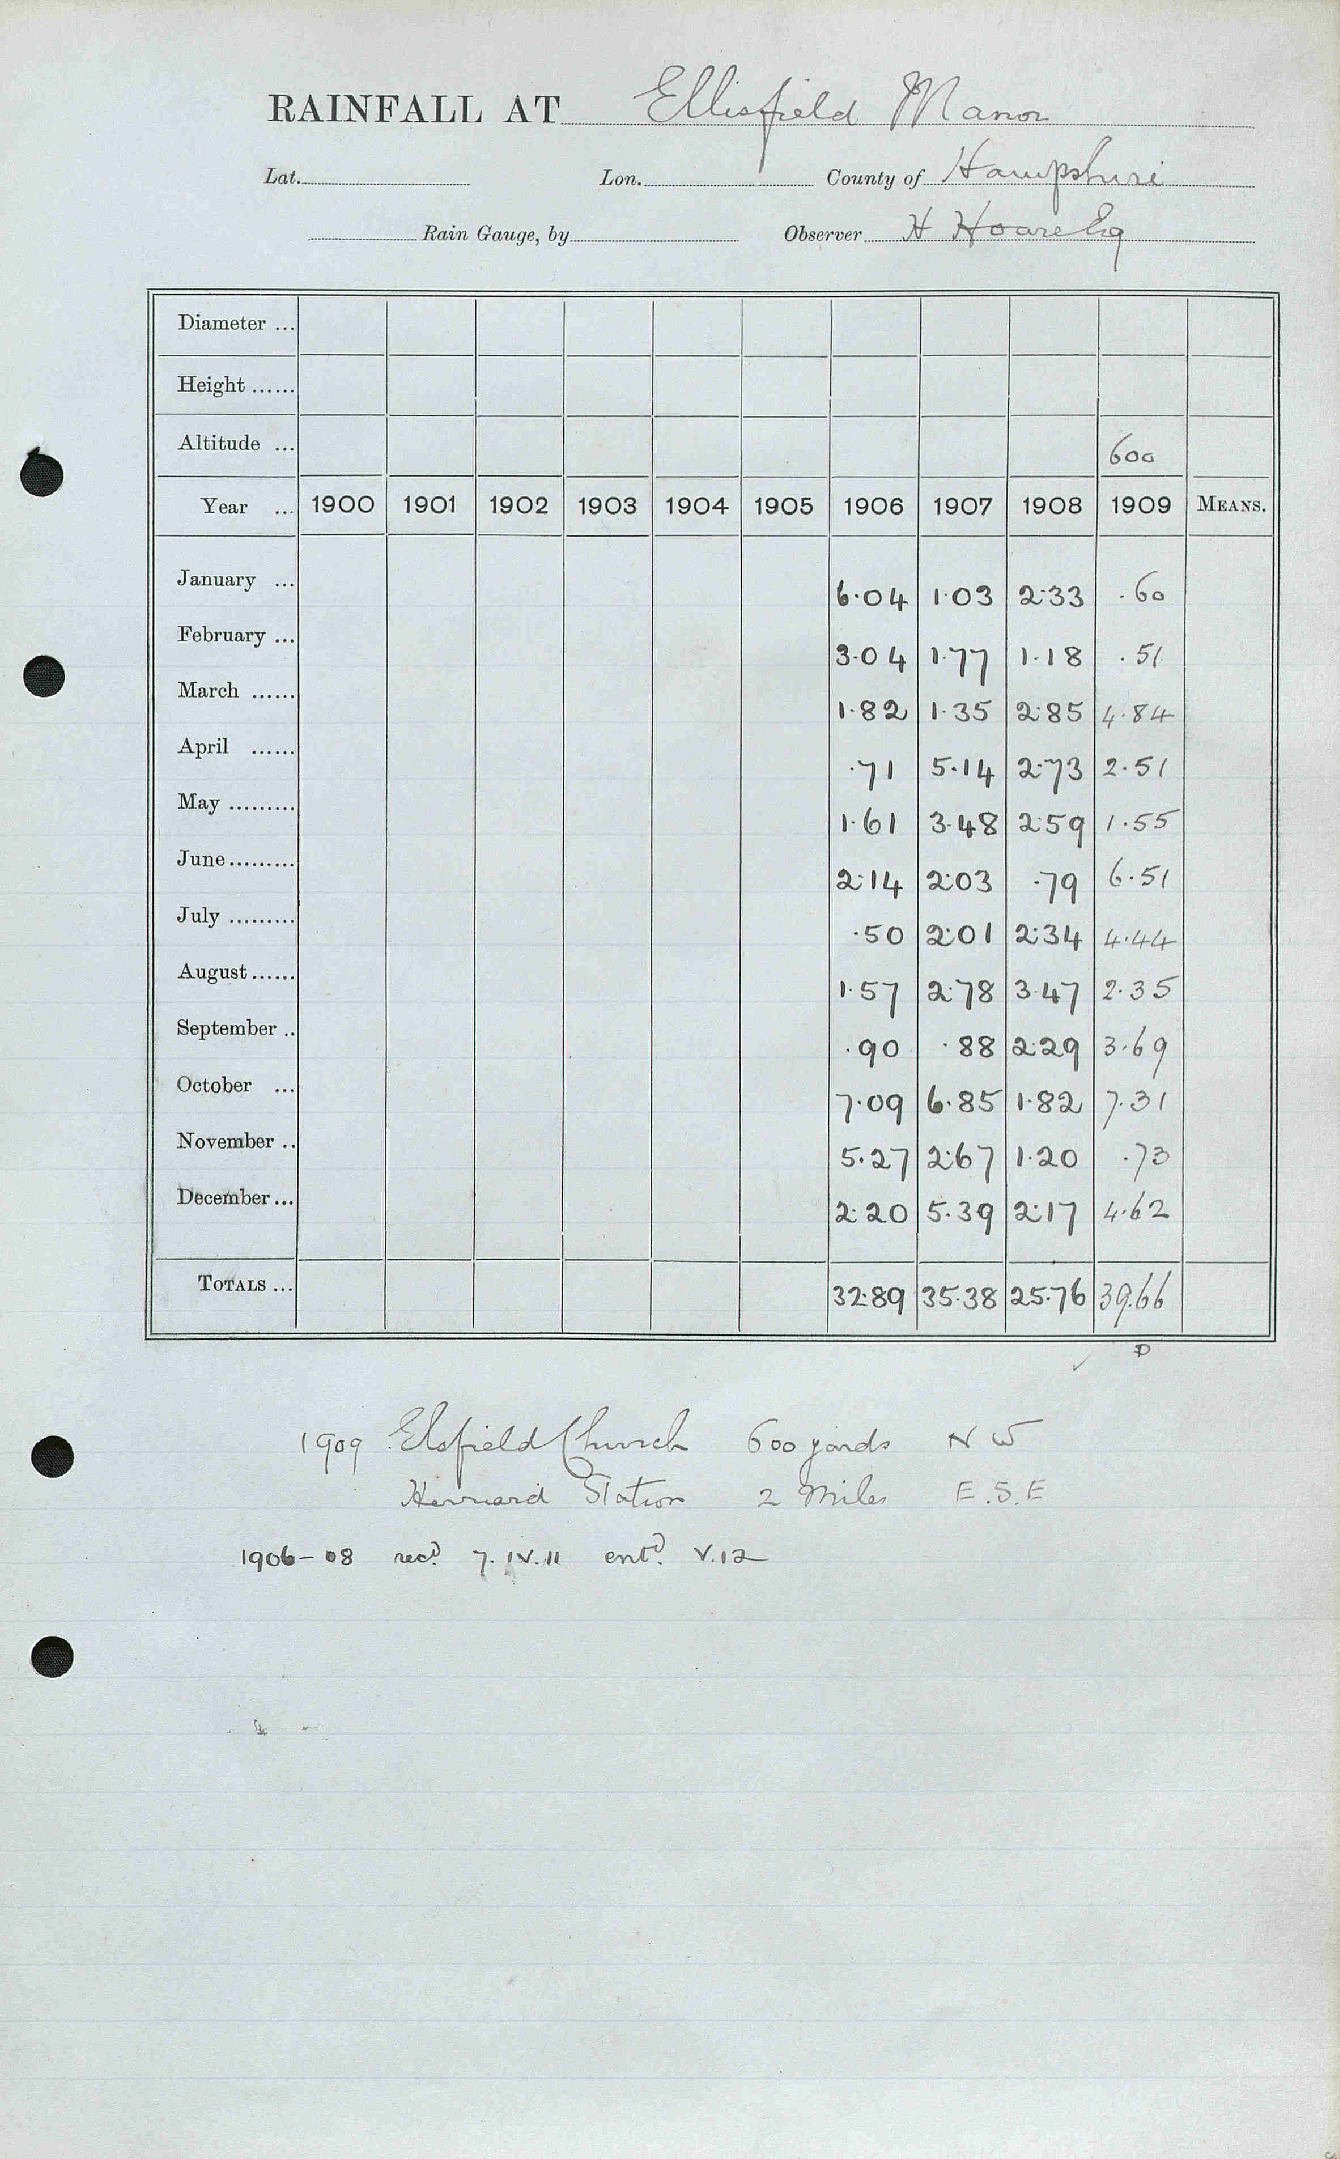 RAINFALL AT Ellisfield Manor
Lat. Lon. County of Hampshire
Rain Gauge, by Observer H Hoare Esq
Diameter ...
Height ......
Altitude ... 600
Year ... 1900 1901 1902 1903 1904 1905 1906 1907 1908 1909 MEANS.
January ... 6.04 1.03 2.33 .60
February ... 3.04 1.77 1.18 .51
March ...... 1.82 1.35 2.85 4.84
April ...... .71 5.14 2.73 2.51
May ......... 1.61 3.48 2.59 1.55
June ......... 2.14 2.03 .79 6.51
July ......... .50 2.01 2.34 4.44
August ...... 1.57 2.78 3.47 2.35
September .. .90 .88 2.29 3.69
October ... 7.09 6.85 1.82 7.31
November .. 5.27 2.67 1.20 .73
December ... 2.20 5.39 2.17 4.62
TOTALS ... 32.89 35.38 25.76 39.66
D
1909 Elsfield Church 600 yards N W
Herriard Station 2 Miles E.S.E
1906-08 recd. 7.IV.11 entd. V.12